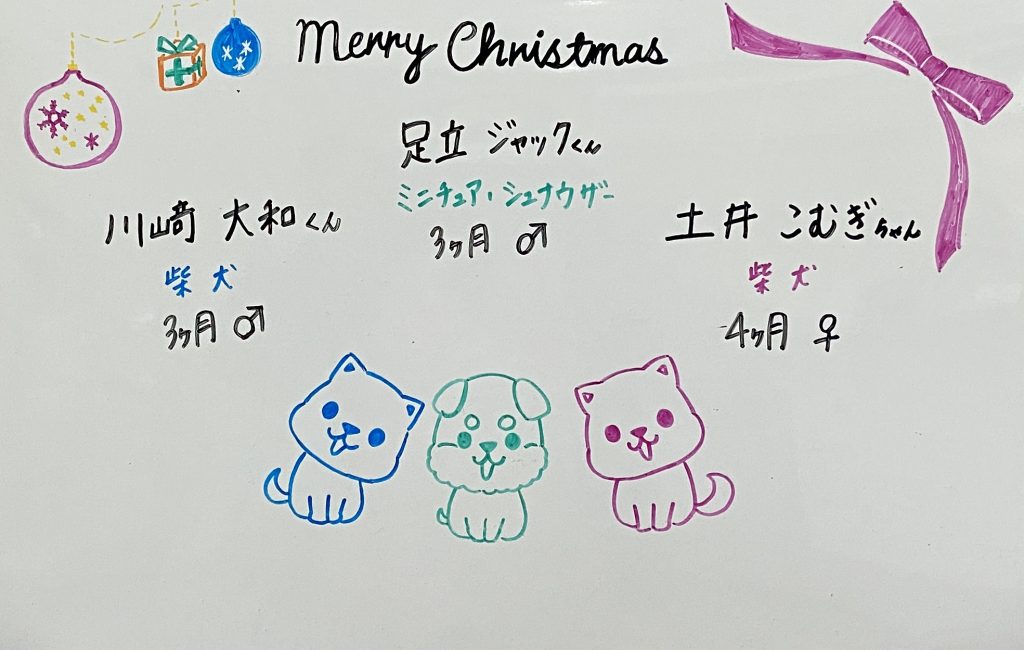 Merry Christmas
足立 ジャックくん
ミニチュア・シュナウザー
3ヶ月 ♂
川﨑 大和くん
柴犬
3ヶ月 ♂
土井 こむぎちゃん
柴犬
4ヶ月 ♀